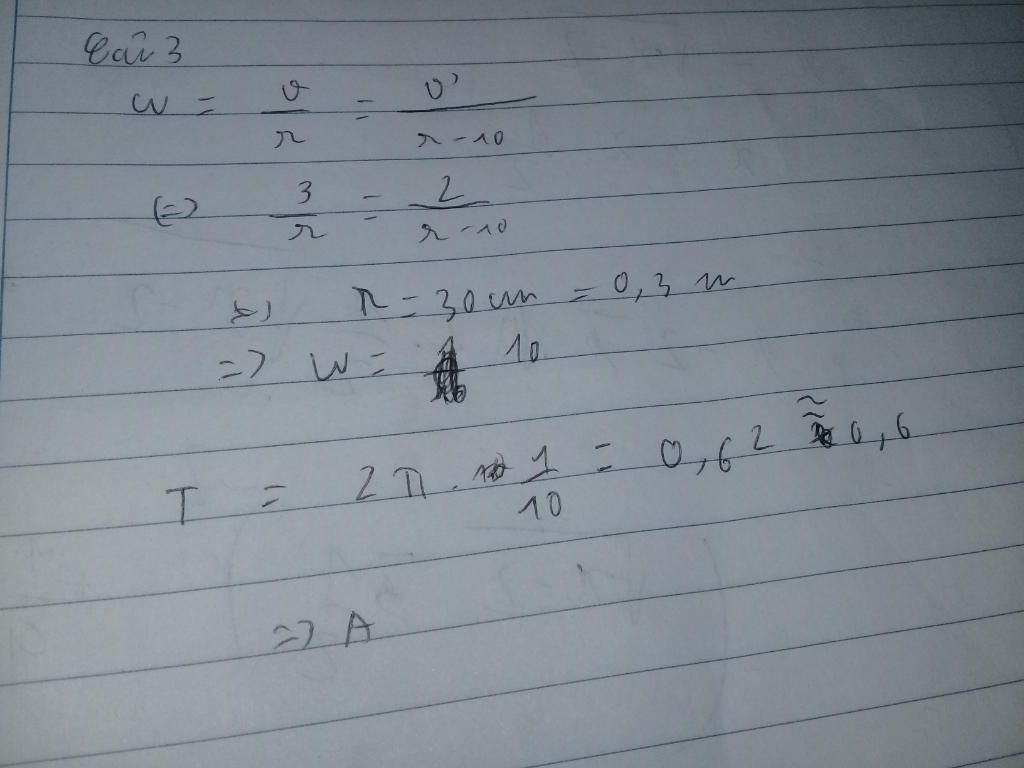 Câu 3
ω = v/r = v'/r-10
(=) 3/r = 2/r-10
r = 30cm = 0,3 m
=> ω = 10
T = 2π. 1/10 = 0,62 ≈ 0,6
=> A